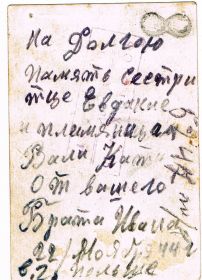 на Долгою
Память Сестри
тце Евдакие
и племяницам
Вали Кати
От вашего
Брата Ивана
22/ Ноября 44 г
Польша